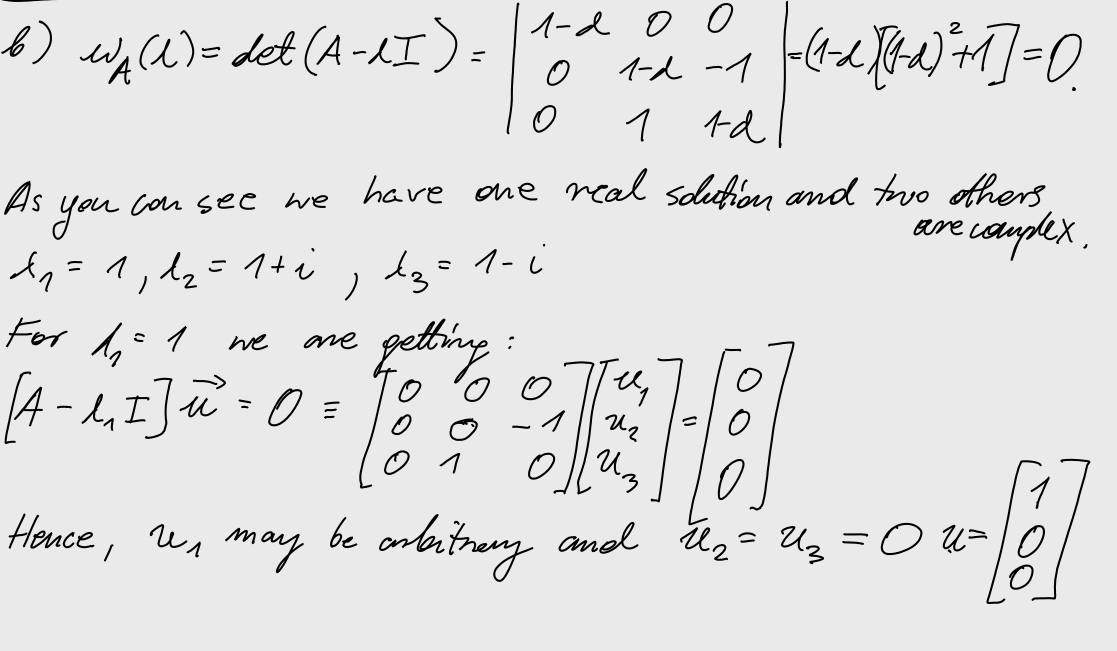 b) w_A(λ) = det(A - λI) = | 1-λ 0 0 ; 0 1-λ -1 ; 0 1 1-λ | = (1-λ)[(1-λ)² + 1] = 0.
As you can see we have one real solution and two others
are complex.
λ₁ = 1, λ₂ = 1+i , λ₃ = 1-i
For λ₁ = 1 we are getting:
[A - λ₁I] u⃗ = 0 ≡ [ 0 0 0 ; 0 0 -1 ; 0 1 0 ] [ u₁ ; u₂ ; u₃ ] = [ 0 ; 0 ; 0 ]
Hence, u₁ may be arbitrary and u₂ = u₃ = 0 u = [ 1 ; 0 ; 0 ]